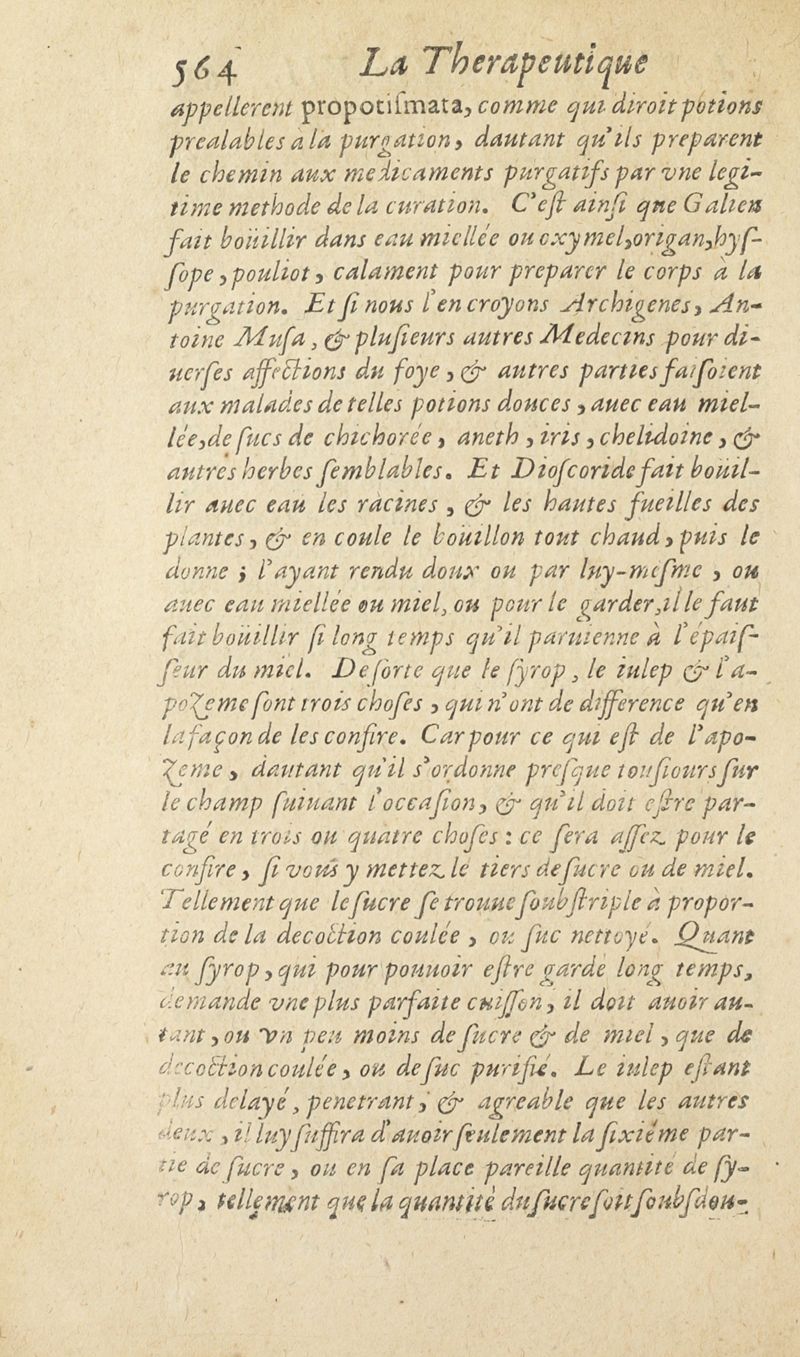 564 La Therapeutique
appellerent propotiſmata, comme qui diroit potions
prealables a la purgation, dautant qu'ils preparent
le chemin aux medicaments purgatifs par vne legi-
time methode de la curation. C'eſt ainſi que Galien
fait boüillir dans eau miellée ou oxymel, origan, hyſ-
ſope, pouliot, calament pour preparer le corps à la
purgation. Et ſi nous l'en croyons Archigenes, An-
toine Muſa, & pluſieurs autres Medecins pour di-
uerſes affections du foye, & autres parties faiſoient
aux malades de telles potions douces, auec eau miel-
lée, de ſucs de chichorée, aneth, iris, chelidoine, &
autres herbes ſemblables. Et Dioſcoride fait boüil-
lir auec eau les racines, & les hautes fueilles des
plantes, & en coule le boüillon tout chaud, puis le
donne ; l'ayant rendu doux ou par luy-meſme, ou
auec eau miellée ou miel, ou pour le garder, il le faut
fait boüillir ſi long temps qu'il paruienne à l'épaiſ-
ſeur du miel. De ſorte que le ſyrop, le iulep & l'a-
pozeme ſont trois choſes, qui n'ont de difference qu'en
la façon de les confire. Car pour ce qui eſt de l'apo-
zeme, dautant qu'il s'ordonne preſque touſiours ſur
le champ ſuiuant l'occaſion, & qu'il doit eſtre par-
tagé en trois ou quatre choſes : ce ſera aſſez pour le
confire, ſi vous y mettez le tiers de ſucre ou de miel.
Tellement que le ſucre ſe trouue ſoubſtriple à propor-
tion de la decoction coulée, ou ſuc nettoyé. Quant
au ſyrop, qui pour pouuoir eſtre gardé long temps,
demande vne plus parfaite cuiſſon, il doit auoir au-
tant, ou vn peu moins de ſucre & de miel, que de
decoction coulée, ou de ſuc purifié. Le iulep eſtant
plus delayé, penetrant, & agreable que les autres
deux, il luy ſuffira d'auoir ſeulement la ſixiéme par-
tie de ſucre, ou en ſa place pareille quantité de ſy-
rop, tellement que la quantité du ſucre ſoit ſoubſdou-